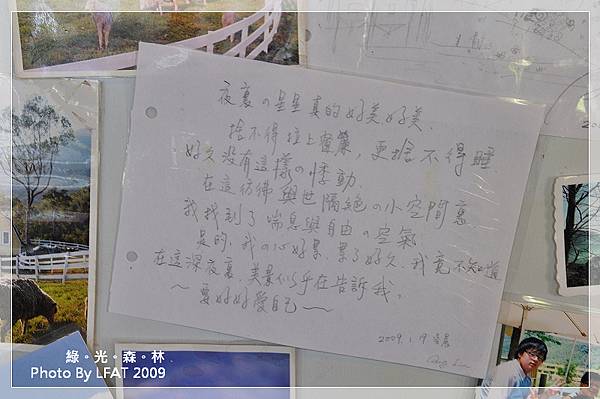 夜裏の星星真的好美好美、
捨不得拉上窗簾，更捨不得睡.
好久沒有這樣の悸動.
在這彷彿與世隔絕の小空間裏
我找到了喘息與自由の空氣
是的，我の心好累，累了好久，我竟不知道
在這深夜裏，美景似乎在告訴我，
～要好好愛自己～
2009.1.19
綠。光。森。林
Photo By LFAT 2009